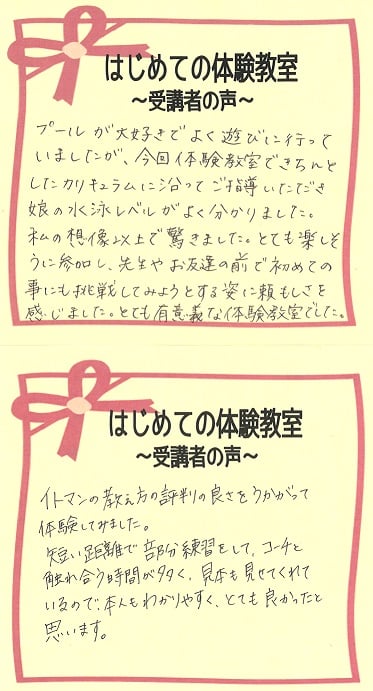 はじめての体験教室
～受講者の声～
プールが大好きでよく遊びに行って
いましたが、今回体験教室できちんと
したカリキュラムに沿ってご指導いただき
娘の水泳レベルがよく分かりました。
私の想像以上で驚きました。とても楽しそ
うに参加し、先生やお友達の前で初めての
事にも挑戦してみようとする姿に頼もしさを
感じました。とても有意義な体験教室でした。
はじめての体験教室
～受講者の声～
イトマンの教え方の評判の良さをうかがって
体験してみました。
短い距離で部分練習をして、コーチと
触れ合う時間が多く、見本も見せてくれて
いるので、本人もわかりやすく、とても良かったと
思います。